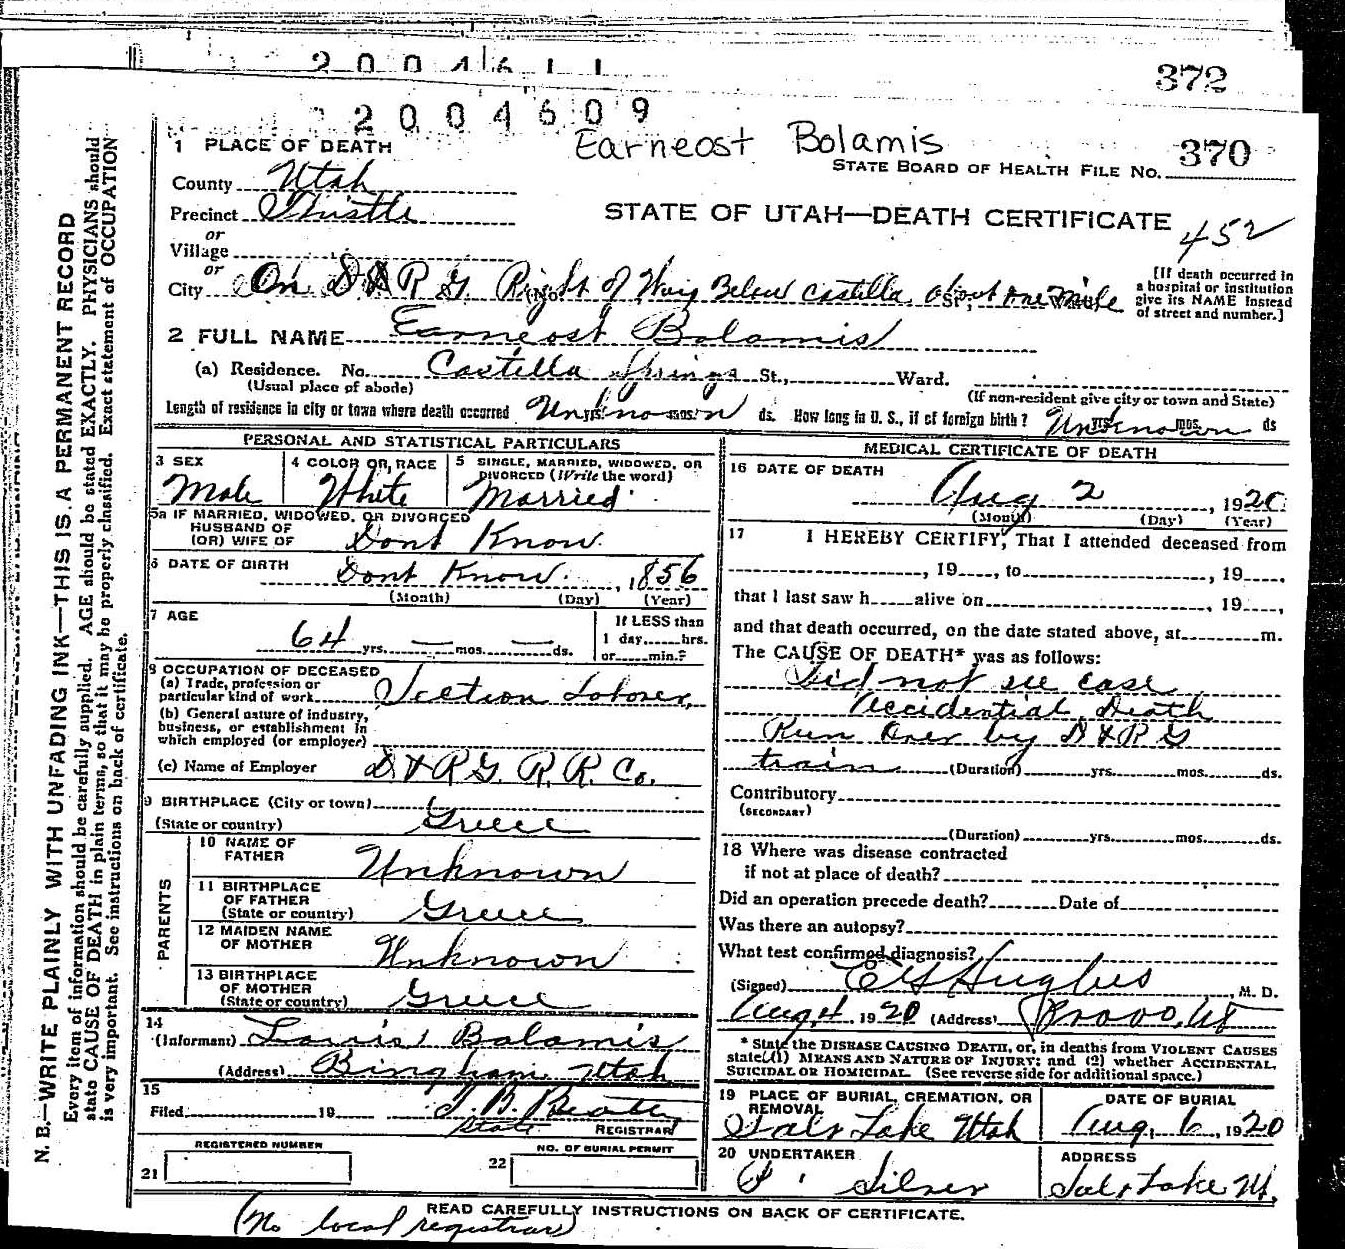 2004611
372
2004609
Earneost Bolamis
1 PLACE OF DEATH
STATE BOARD OF HEALTH FILE No. 370
County Utah
Precinct Thistle
STATE OF UTAH—DEATH CERTIFICATE
452
or
Village
or
City On D & R G. Right of Way Below Castella about one mile
[If death occurred in
a hospital or institution
give its NAME instead
of street and number.]
2 FULL NAME Earneost Bolamis
(a) Residence. No. Castella Springs St., Ward.
(Usual place of abode)
(If non-resident give city or town and State)
Length of residence in city or town where death occurred Unknown yrs. mos. ds. How long in U. S., if of foreign birth? Unknown yrs. mos. ds
PERSONAL AND STATISTICAL PARTICULARS
3 SEX
Male
4 COLOR OR RACE
White
5 SINGLE, MARRIED, WIDOWED, OR
DIVORCED (Write the word)
Married
5a IF MARRIED, WIDOWED, OR DIVORCED
HUSBAND OF
(OR) WIFE OF Dont Know
6 DATE OF BIRTH Dont Know, 1856
(Month) (Day) (Year)
7 AGE
64 yrs. — mos. — ds.
If LESS than
1 day, hrs.
or min.?
8 OCCUPATION OF DECEASED
(a) Trade, profession or
particular kind of work Section Laborer,
(b) General nature of industry,
business, or establishment in
which employed (or employer)
(c) Name of Employer D & R G. R. R. Co.
9 BIRTHPLACE (City or town)
(State or country) Greece
PARENTS
10 NAME OF
FATHER Unknown
11 BIRTHPLACE
OF FATHER
(State or country) Greece
12 MAIDEN NAME
OF MOTHER Unknown
13 BIRTHPLACE
OF MOTHER
(State or country) Greece
14
(Informant) Louis Bolamis
(Address) Bingham Utah
15
Filed 19
T. B. Beatty
State REGISTRAR
REGISTERED NUMBER
21
NO. OF BURIAL PERMIT
22
MEDICAL CERTIFICATE OF DEATH
16 DATE OF DEATH
Aug 2, 1920
(Month) (Day) (Year)
17 I HEREBY CERTIFY, That I attended deceased from
, 19 , to , 19 ,
that I last saw h alive on , 19 ,
and that death occurred, on the date stated above, at m.
The CAUSE OF DEATH* was as follows:
Did not see case
Accidential Death
Run Over by D & R G
train (Duration) yrs. mos. ds.
Contributory
(SECONDARY)
(Duration) yrs. mos. ds.
18 Where was disease contracted
if not at place of death?
Did an operation precede death? Date of
Was there an autopsy?
What test confirmed diagnosis?
(Signed) Hughes, M. D.
Aug, 4, 1920 (Address) Provo, Ut
* State the DISEASE CAUSING DEATH, or, in deaths from VIOLENT CAUSES
state (1) MEANS AND NATURE OF INJURY; and (2) whether ACCIDENTAL,
SUICIDAL OR HOMICIDAL. (See reverse side for additional space.)
19 PLACE OF BURIAL, CREMATION, OR
REMOVAL
Salt Lake Utah
DATE OF BURIAL
Aug, 6, 1920
20 UNDERTAKER
Silver
ADDRESS
Salt Lake Ut,
READ CAREFULLY INSTRUCTIONS ON BACK OF CERTIFICATE.
(No local registrar)
N. B.—WRITE PLAINLY WITH UNFADING INK—THIS IS A PERMANENT RECORD
Every item of information should be carefully supplied. AGE should be stated EXACTLY. PHYSICIANS should
state CAUSE OF DEATH in plain terms, so that it may be properly classified. Exact statement of OCCUPATION
is very important. See instructions on back of certificate.